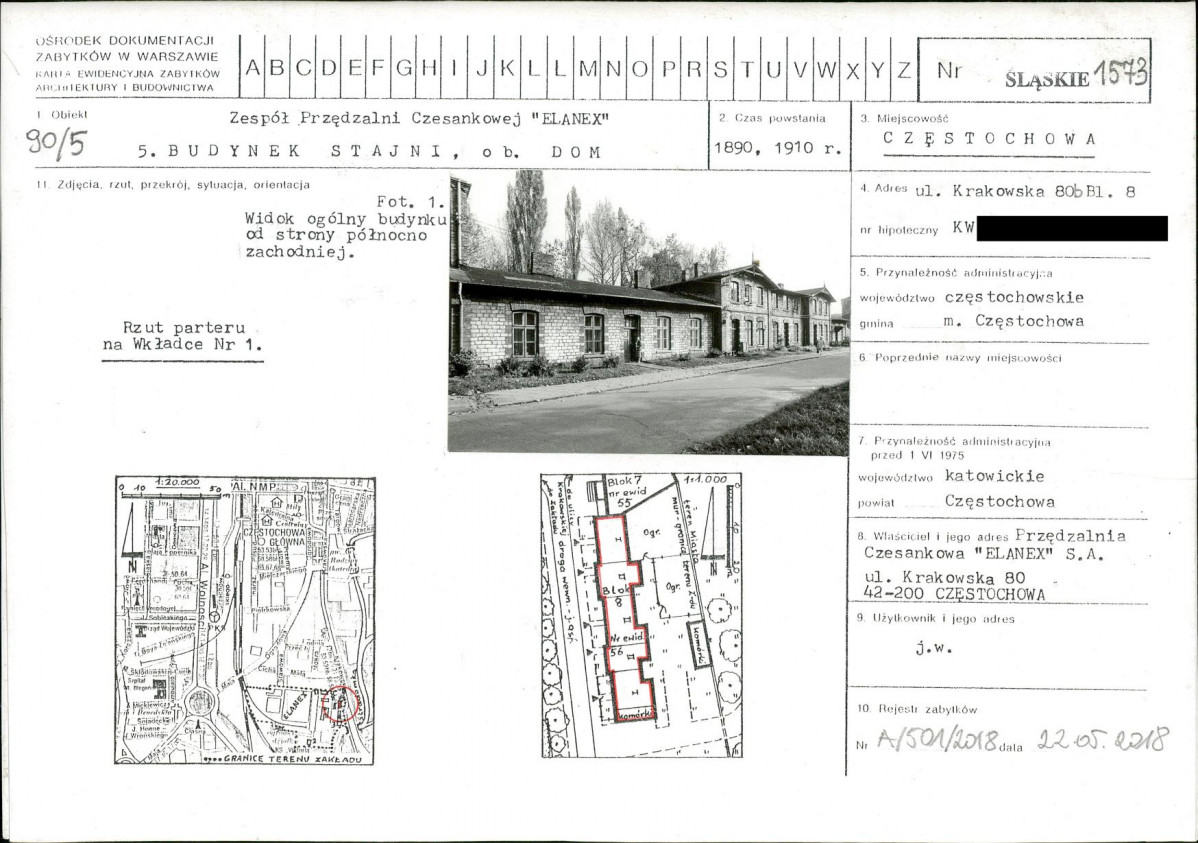 OŚRODEK DOKUMENTACJI
ZABYTKÓW W WARSZAWIE
KARTA EWIDENCYJNA ZABYTKÓW
ARCHITEKTURY I BUDOWNICTWA
A B C D E F G H I J K L Ł M N O P R S T U V W X Y Z
Nr ŚLĄSKIE 1573
1. Obiekt
90/5
Zespół Przędzalni Czesankowej "ELANEX"
5. BUDYNEK STAJNI, ob. DOM
2. Czas powstania
1890, 1910 r.
3. Miejscowość
CZĘSTOCHOWA
11. Zdjęcia, rzut, przekrój, sytuacja, orientacja
Fot. 1.
Widok ogólny budynku
od strony północno
zachodniej.
Rzut parteru
na Wkładce Nr 1.
4. Adres ul. Krakowska 80b Bl. 8
nr hipoteczny KW
5. Przynależność administracyjna
województwo częstochowskie
gmina m. Częstochowa
6. Poprzednie nazwy miejscowości
7. Przynależność administracyjna
przed 1 VI 1975
województwo katowickie
powiat Częstochowa
8. Właściciel i jego adres Przędzalnia
Czesankowa "ELANEX" S.A.
ul. Krakowska 80
42-200 CZĘSTOCHOWA
9. Użytkownik i jego adres
j.w.
10. Rejestr zabytków
Nr A/501/2018 data 22.05.2018
1:20.000
0 10 50 m
Al. NMP
CZĘSTOCHOWA
GŁÓWNA
Al. Wolności
Piotrkowska
Sobieskiego
Urząd Wojewódzki
Cicha
Mała
N
ELANEX
GRANICE TERENU ZAKŁADU
Blok 7
nr ewid
55
1:1.000
Ogr.
Blok
8
Ogr.
Nr ewid
56
komórki
komórki
N